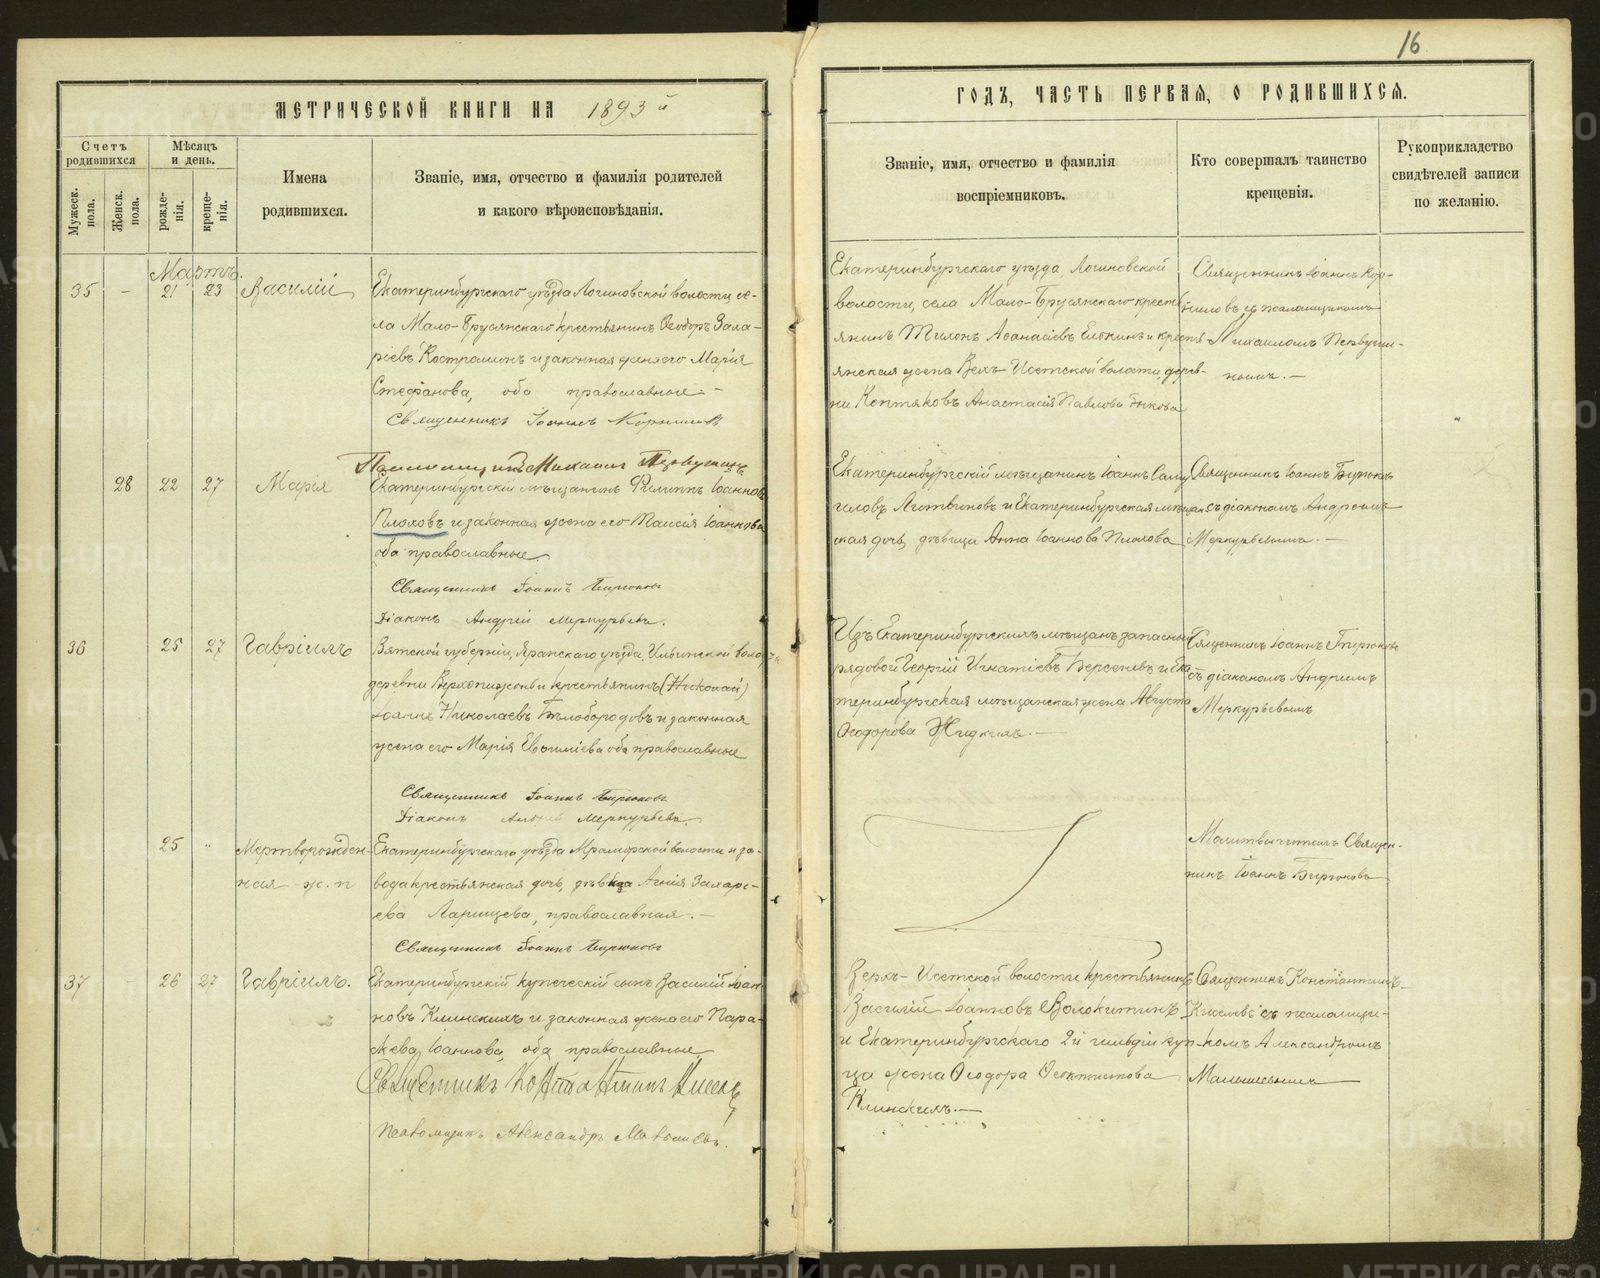 16
МЕТРИЧЕСКОЙ КНИГИ НА 1893 й
ГОДЪ, ЧАСТЬ ПЕРВАЯ, О РОДИВШИХСЯ.
Счетъ родившихся
Мужеск. пола.
Женск. пола.
Мѣсяцъ и день.
рожде-нія.
креще-нія.
Имена родившихся.
Званіе, имя, отчество и фамилія родителей
и какого вѣроисповѣданія.
Званіе, имя, отчество и фамилія
воспріемниковъ.
Кто совершалъ таинство
крещенія.
Рукоприкладство
свидѣтелей записи
по желанію.
Мартъ.
35 - 21 23 Василій
Екатеринбургскаго уѣзда Логиновской волости се-
ла Мало-Брусянскаго крестьянинъ Ѳеодоръ Заха-
ріевъ Костроминъ и законная жена его Марія
Стефанова, оба православные.-
Священникъ Іоаннъ Корниловъ
Псаломщикъ Михаилъ Первушинъ
Екатеринбургскаго уѣзда, Логиновской
волости, села Мало-Брусянскаго кресть-
янинъ Тихонъ Аѳанасіевъ и кресть-
янская жена Верх-Исетской волости, дерев-
ни Коптяковъ Анастасія Павлова
Священникъ Іоаннъ Кор-
ниловъ съ псаломщикомъ
Михаиломъ Первуши-
нымъ.-
28 22 27 Марія
Екатеринбургскій мѣщанинъ Филиппъ Іоанновъ
Плоховъ и законная жена его Таисія Іоаннова
оба православные
Священникъ Іоаннъ Бирюковъ
Діаконъ Андрей Меркурьевъ.
Екатеринбургскій мѣщанинъ Іоаннъ Саму-
иловъ Литвиновъ и Екатеринбургская мѣщан-
ская дочь, дѣвица Анна Іоаннова Плохова
Священникъ Іоаннъ Бирюковъ
съ діакономъ Андреемъ
Меркурьевымъ.-
36 25 27 Гавріилъ
Вятской губерніи, Яранскаго уѣзда, Ильинской воло
деревни крестьянинъ (Николай)
Іоаннъ Николаевъ Бѣлобородовъ и законная
жена его Марія Евѳиміева оба православные
Священникъ Іоаннъ Бирюковъ
Діаконъ Андрей Меркурьевъ.
Изъ Екатеринбургскихъ мѣщанъ запасный
рядовой Георгій Игнатіевъ Берсеневъ и Ека-
теринбургская мѣщанская жена Августа
Ѳеодорова Жидкихъ.-
Священникъ Іоаннъ Бирюковъ
съ діакономъ Андреемъ
Меркурьевымъ
25 " Мертворожден-
ная ж. п
Екатеринбургскаго уѣзда Мраморской волости и за-
вода крестьянская дочь, дѣвица Агнія Захарі-
ева Ларищева, православная.-
Священникъ Іоаннъ Бирюковъ
Молитвы читалъ Священ-
никъ Іоаннъ Бирюковъ
37 - 26 27 Гавріилъ.
Екатеринбургскій купеческій сынъ Василій Іоан-
новъ Клинскихъ и законная жена его Пара-
скева Іоаннова, оба православные
Священникъ Константинъ Киселевъ
Псаломщикъ Александръ Малышевъ.
Верхъ-Исетской волости крестьянинъ
Василій Іоанновъ Волокитинъ
и Екатеринбургскаго 2й гильдіи куп-
ца жена Ѳеодора Ѳеоктистова
Клинскихъ.-
Священникъ Константинъ
Киселевъ съ псаломщи-
комъ Александромъ
Малышевымъ